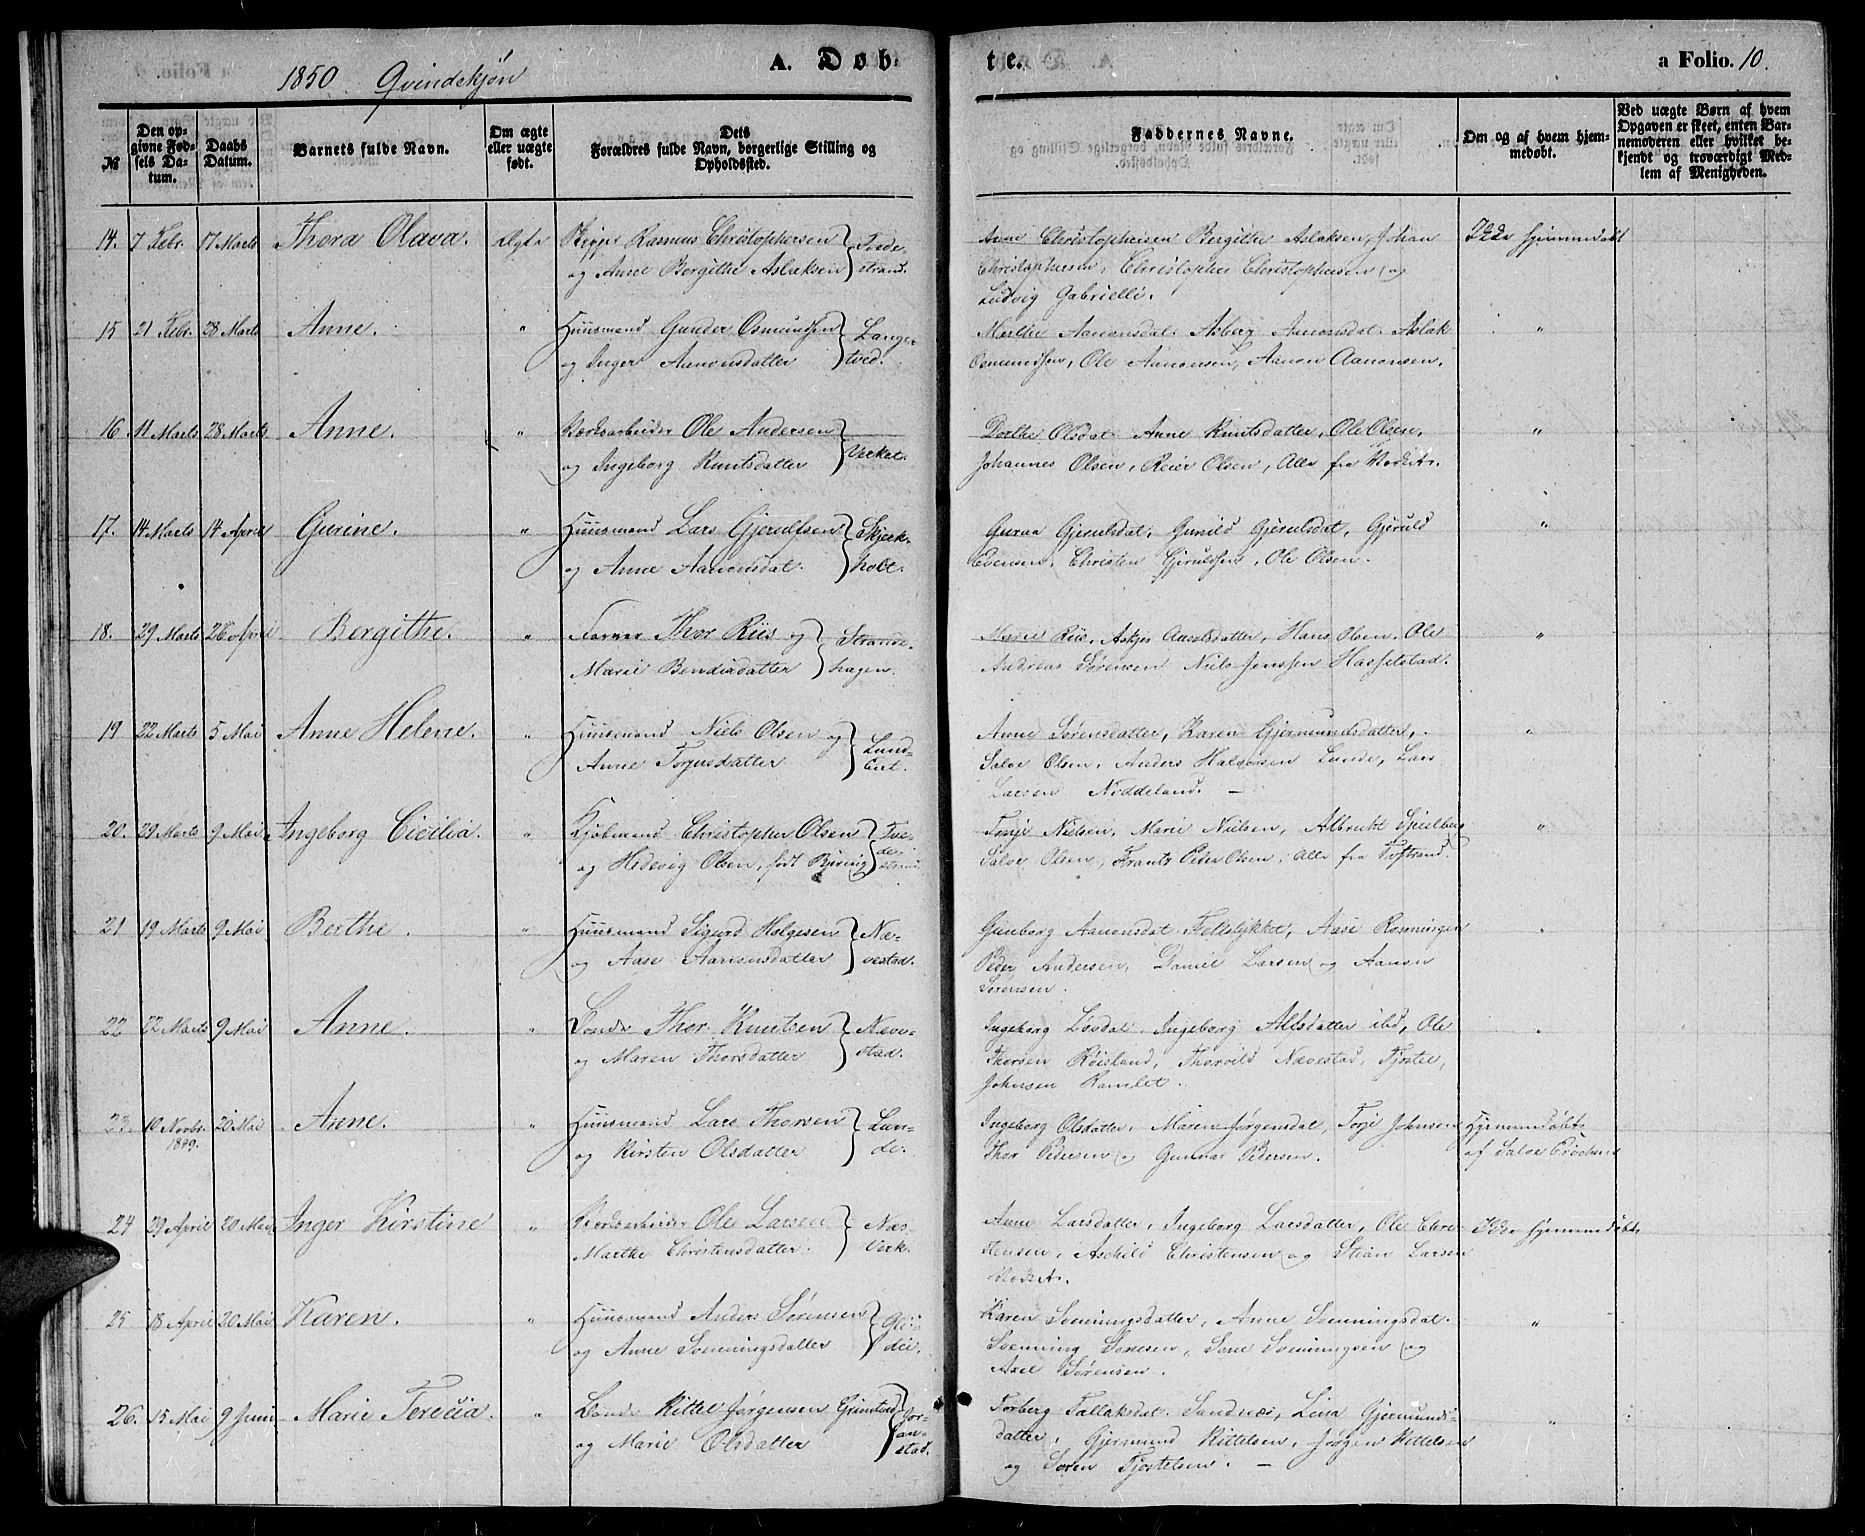 1850. Qvindekjøn
A. Døb
te.
a Folio. 10.
№
Den opgivne Fødsels Datum.
Daabs Datum.
Barnets fulde Navn.
Om ægte eller uægte født.
Dets Forældres fulde Navn, borgerlige Stilling og Opholdssted.
Faddernes Navne.
Om og af hvem hjemmedøbt.
Ved uægte Børn af hvem Opgaven er skeet, enten Barnemoderen eller hvilket bekjendt og troværdigt Medlem af Menigheden.
14. 7 Febr. 17 Marts Thora Olava. Ægte Rasmus Christophersen Tvede-
og Anne Bergithe Aslaksen strand.
Anne Christophersen Bergitte Aslaksen, Johan
Christophersen, Christopher Christophersen og
Ludvig Gabrielli.
Ikke hjemmedøbt
15 21 Febr. 28 Marts Anne. " Huusmand Gunder Osmundsen Lange-
og Inger Aanonsdatter tved.
Merthe Aanonsdat. Asberg Aanonsdat. Aslak
Osmundsen, Ole Aanonsen, Aanon Aanonsen.
"
16 11 Marts 28 Marts Anne. " Værksarbeider Ole Andersen
og Ingeborg Knutsdatter Verket.
Dorthe Olsdat. Anne Knutsdatter, Ole Olsen,
Johannes Olsen, Reier Olsen, Alle fra Værket.
"
17. 14 Marts 14 April Gurine. " Huusmand Lars Gjerulfsen Skjerk-
og Anne Aanonsdat. holt.
Guraa Gjerulsdat, Gunild Gjerulsdat, Gjeruld
Evensen, Christen Gjeruldsen, Ole Olsen.
"
18. 29 Marts 26 April Bergithe. " Thor Riis og Strande-
Marie Bendixdatter hagen.
Marie Riis, Askjer Aasoldsdatter, Hans Olsen, Ole
Andreas Sørensen Niels Jenssen Hasselstad.
"
19 22 Marts 5 Mai Anne Helene. " Huusmand Niels Olsen og Lunde-
Anne Torjusdatter
Anne Sørensdatter, Karen Gjermundsdatter,
Salve Olsen, Anders Halvorsen Lunde, Lars
Larsen Nøddeland. —
"
20. 29 Marts 9 Mai Ingeborg Cicilia. " Kjøbmand Christopher Olsen Tve-
og Hedevig Olsen, født Bjering destrand
Terje Nielsen, Marie Nielsen, Albrekt Spielberg
Salve Olsen, Frants Peder Olsen, Alle fra Tvstrand.
"
21 19 Marts 9 Mai Berthe. " Huusmand Sigurd Helgesen Næ-
og Aase Aanonsdatter vestad.
Gunborg Aanonsdat. Fellelykket, Aase Rønningen
Peder Andersen, Daniel Larsen og Aanon
Sørensen.
"
22 22 Marts 9 Mai Anne. " Bonde Thor Knutsen Næve-
og Maren Thorsdatter stad.
Ingeborg Løvdal. Ingeborg Alfsdatter ibd, Ole
Thorsen Røisland, Thorvild Nævestad, Tjostel,
Johnsen Hamlet.
"
23. 10 Novbr. 1849. 20 Mai Anne. " Huusmand Lars Thorsen Lun-
og Kirsten Olsdatter de.
Ingeborg Olsdatter, Maren Jørgensdat, Torje Johnsen
Thor Pedersen og Gunnar Pedersen.
Hjemmedøbt
af Salve
24 29 April 20 Mai Inger Kirstine " Værksarbeider Ole Larsen Næs
Marthe Christensdatter. Verk.
Anne Larsdatter, Ingeborg Larsdatter, Ole Chri-
stensen, Aschild Christensen og Stian Larsen
Verket.
Ikke hjemmedøbt
25 18 April 20 Mai Karen. " Huusmand Anders Sørensen
og Anne Svenningsdatter
Karen Svenningsdatter, Anne Svenningsdat.
Svenning Sørensen, Sone Svenningsen og
Axel Sørensen.
"
26. 15 Mai 9 Juni Marie Terecia. " Bonde Kittel Jørgensen Grimstad Gor-
og Marie Olsdatter anstad.
Torberg Tallaksdat. Sandnæs, Lina Gjermunds-
datter, Gjermund Kittelsen, Jørgen Kittelsen
og Søren Tjostelsen. —
"